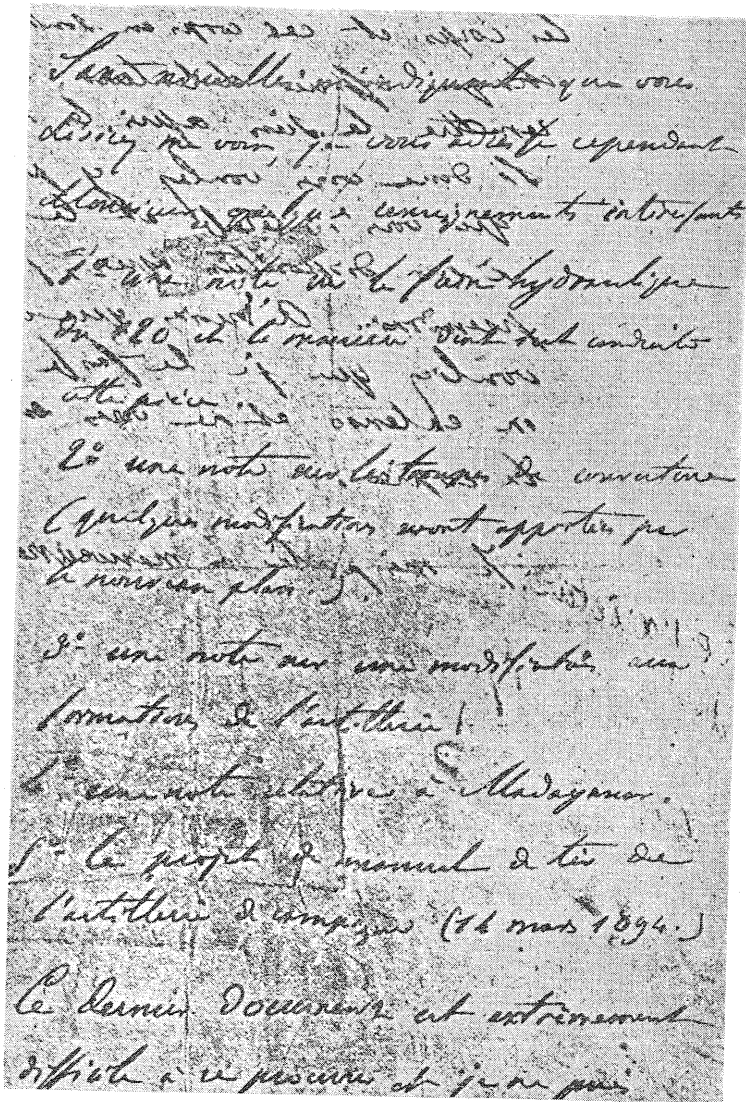 Sans nouvelles m'indiquant que vous
désirez me voir, je vous adresse cependant
Monsieur quelques renseignements intéressants
1° une note sur le frein hydraulique
du 120 et la manière dont s'est conduite
cette pièce
2° une note sur les troupes de couverture
(quelques modifications seront apportées par
le nouveau plan.).
3° une note sur une modification aux
formations de l'artillerie
4° une note relative à Madagascar.
5° le projet de manuel de tir de
l'artillerie de campagne (14 mars 1894.)
Ce dernier document est extrêmement
difficile à se procurer et je ne puis